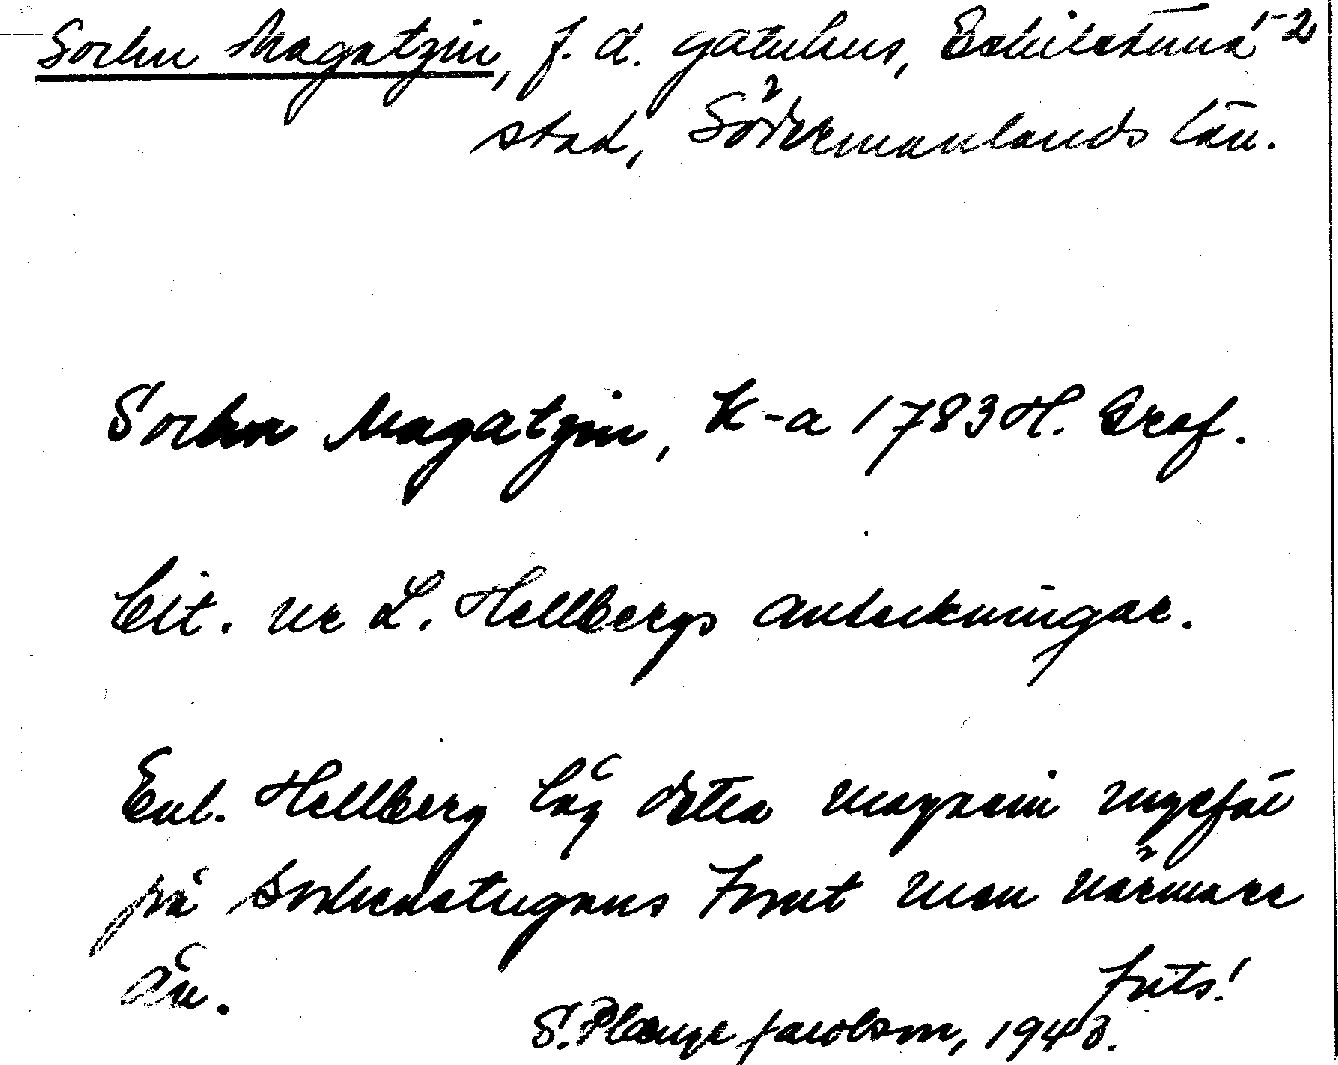 Sockn Magatzin, f. d. gatuhus, Eskilstuna -2
stad, Södermanlands län.
Sockn Magatzin, K-a 1783 H. Graf.
Cit. ur L. Hellbergs anteckningar.
Enl. Hellberg låg detta magasin ungefär
på sockenstugans tomt men närmare
ån. forts!
S. Jacobson, 1943.